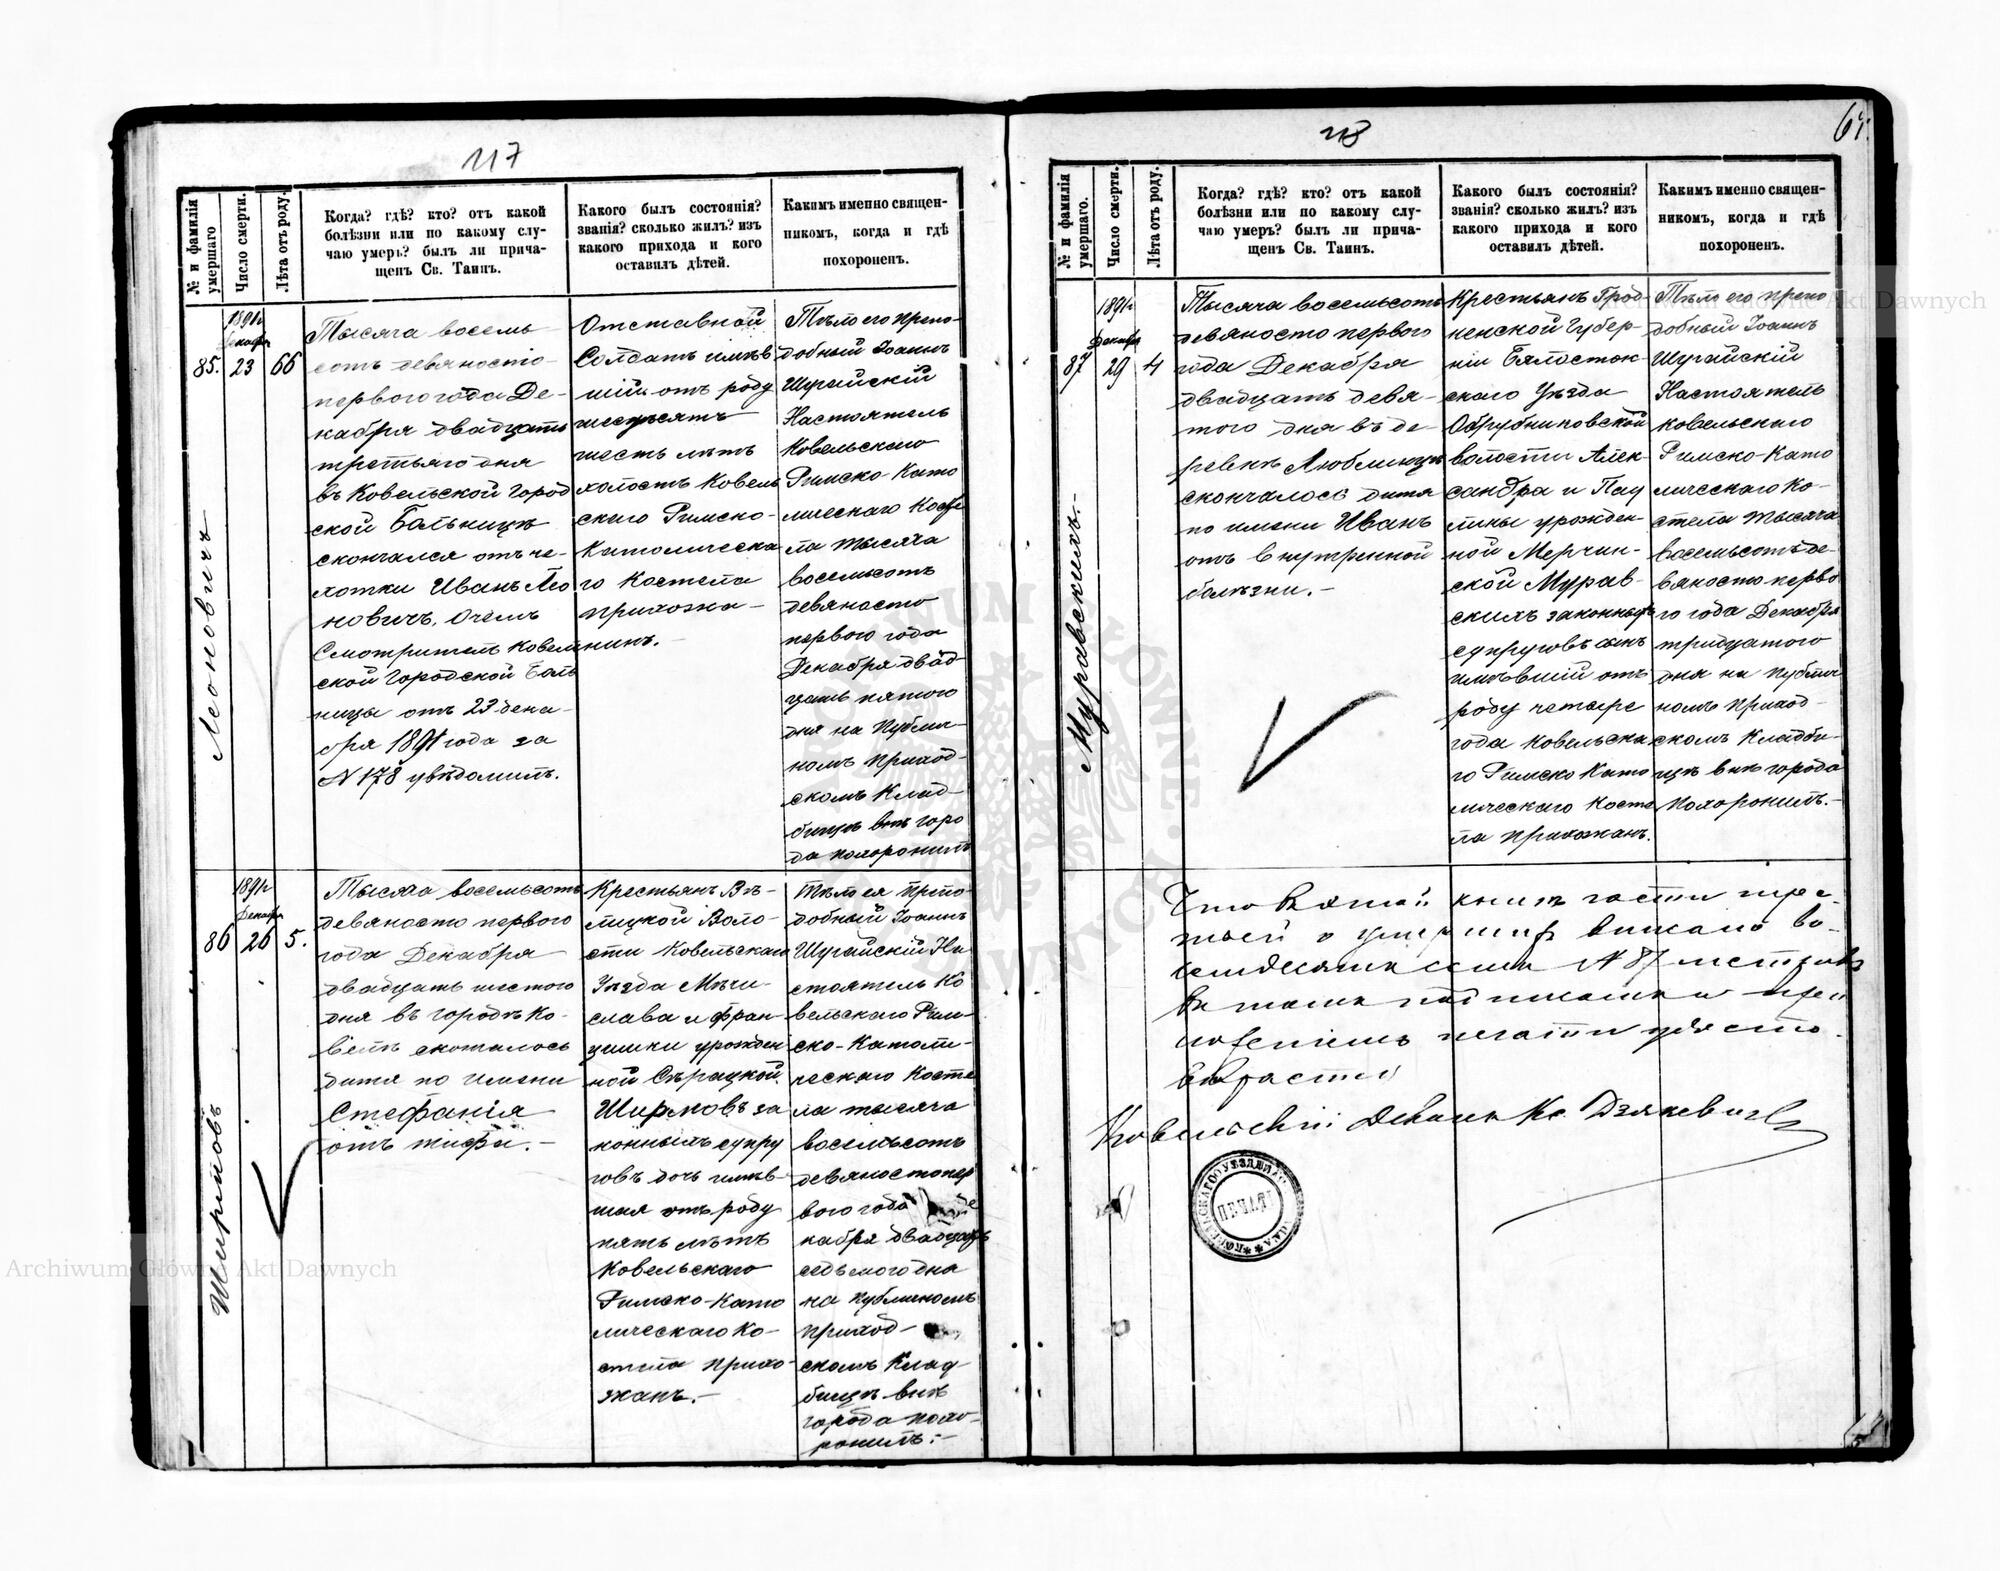 117
№ и фамилія умершаго
Число смерти.
Лѣта отъ роду.
Когда? гдѣ? кто? отъ какой
болѣзни или по какому слу-
чаю умеръ? былъ ли прича-
щенъ Св. Таинъ.
Какого былъ состоянія?
званія? сколько жилъ? изъ
какого прихода и кого
оставилъ дѣтей.
Какимъ именно священ-
никомъ, когда и гдѣ
похороненъ.
85.
Леоновичъ
1891 г.
Декабря
23
66
Тысяча восемь
сотъ девяносто
перваго года Де-
кабря двадцать
третьяго дня
въ Ковельской город
ской Больницѣ
скончался отъ че-
хотки Иванъ Лео
новичъ, о чемъ
Смотритель Ковель
ской Городской Боль
ницы отъ 23 дека-
бря 1891 года за
N 178 увѣдомилъ.
Отставной
Солдатъ имѣв
шій отъ роду
шестьдесятъ
шесть лѣтъ
холостъ Ковель
скаго Римско-
Католическа
го Костела
прихожа-
нинъ.-
Тѣло его препо-
добный Іоаннъ
Шугайскій
Настоятель
Ковельскаго
Римско Като
лическаго Косте
ла тысяча
восемьсотъ
девяносто
перваго года
Декабря двад-
цать пятого
дня на Публич-
номъ Приход-
скомъ Клад-
бищѣ внѣ горо
да похоронилъ
86
Ширмовъ
1891 г
Декабря
26
5.
Тысяча восемьсотъ
девяносто перваго
года Декабря
двадцать шестого
дня въ городѣ Ко-
велѣ скончалось
дитя по имени
Стефанія
отъ тифа.-
Крестьянъ Вѣ-
лицкой Воло-
сти Ковельскаго
Уѣзда Мѣчи-
слава и Фран-
цишки урожден
ной Сѣрацкой.
Ширмовъ за
конныхъ супру
говъ дочь имѣв-
шая отъ роду
пять лѣтъ
Ковельскаго
Римско-Като
лическаго Ко-
стела прихо-
жанъ.-
Тѣло ея препо-
добный Іоаннъ
Шугайскій На
стоятель Ко
вельскаго Рим-
ско-Католи-
ческаго Косте
ла тысяча
восемьсотъ
девяносто пер
вого года Де
кабря двадцать
седьмого дня
на Публичномъ
приход-
скомъ Клад
бищѣ внѣ
города похо-
ронилъ.-
118
№ и фамилія умершаго.
Число смерти.
Лѣта отъ роду.
Когда? гдѣ? кто? отъ какой
болѣзни или по какому слу-
чаю умеръ? былъ ли прича-
щенъ Св. Таинъ.
Какого былъ состоянія?
званія? сколько жилъ? изъ
какого прихода и кого
оставилъ дѣтей.
Какимъ именно священ-
никомъ, когда и гдѣ
похороненъ.
87
Муравскихъ.-
1891 г
Декабря
29
4
Тысяча восемьсотъ
девяносто перваго
года Декабря
двадцать девя-
того дня въ де-
ревнѣ Люблинцѣ
скончалось дитя
по имени Иванъ
отъ внутренной
болѣзни.-
Крестьянъ Грод-
ненской Губер-
ніи Бялосток-
скаго Уѣзда
Обрубниковской
волости Алек-
сандра и Пау
лины урожден-
ной Мерчин-
ской Мурав-
скихъ законныхъ
супруговъ сынъ
имѣвшій отъ
роду четыре
года Ковельска
го Римско Като
лическаго Косте
ла прихожанъ.
Тѣло его препо
добный Іоаннъ
Шугайскій
Настоятель
Ковельскаго
Римско-Като
лическаго Ко-
стела тысяча
восемьсотъ де-
вяносто перво
го года Декабря
тридцатого
дня на Публич
номъ Приход-
скомъ Кладби-
щѣ внѣ города
похоронилъ.-
Что въ этой книгѣ части тре-
тьей о умершихъ вписано во-
семдесятъ семь N 87 метрикъ
въ томъ подписомъ и при
ложеніемъ печати удосто-
Ковельскій Деканъ Кс. Дзякевичъ
ПЕЧАТЬ
Archiwum Główne Akt Dawnych
Akt Dawnych